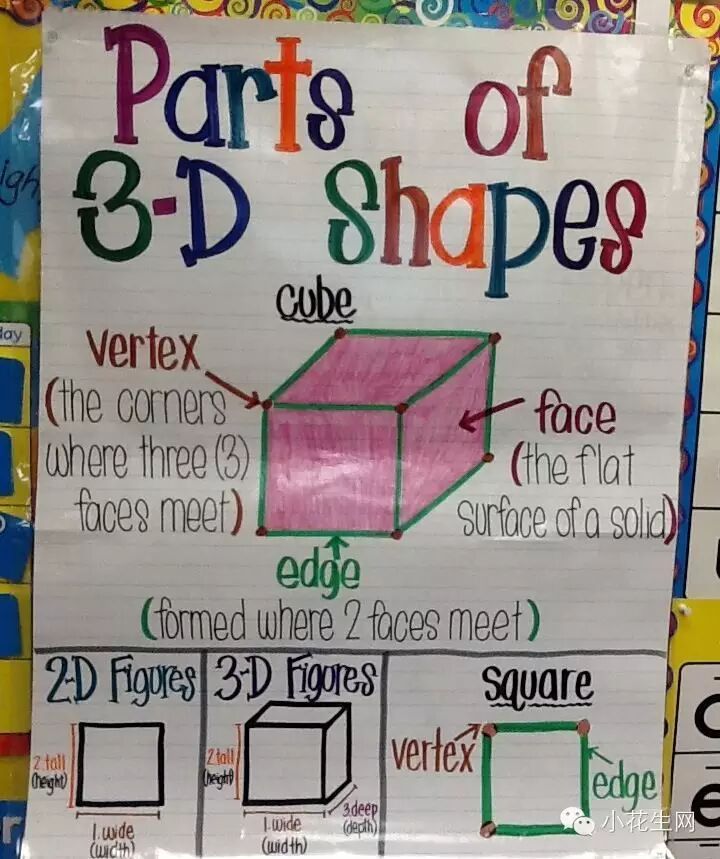 Parts of
3-D Shapes
cube
vertex
(the corners
where three (3)
faces meet)
face
(the flat
surface of a solid)
edge
(formed where 2 faces meet)
2-D Figures
2.tall
(height)
1.wide
(width)
3-D Figures
2.tall
(height)
1.wide
(width)
3.deep
(depth)
square
vertex
edge
小花生网
day